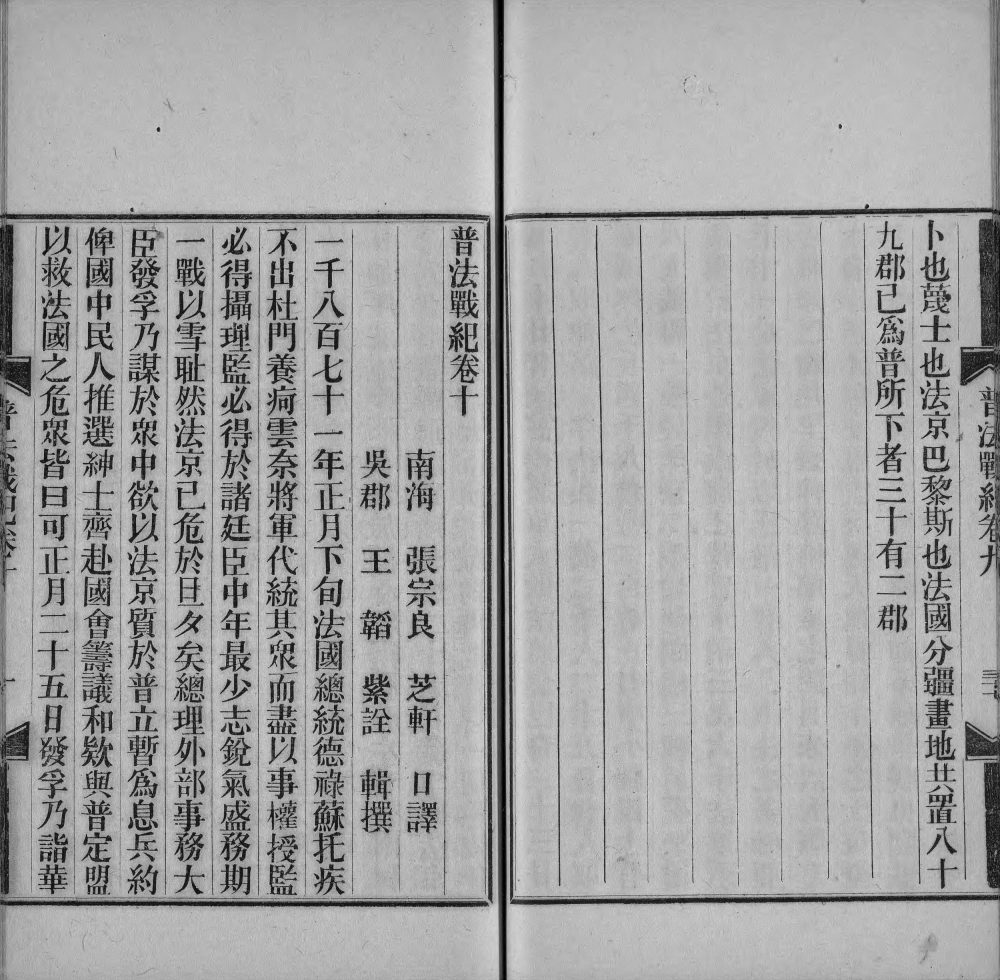 普法戰紀卷九
卜也蔑士也法京巴黎斯也法國分疆畫地共置八十
九郡已為普所下者三十有二郡
普法戰紀卷十
南海 張宗良 芝軒 口譯
吳郡 王 韜 紫詮 輯撰
一千八百七十一年正月下旬法國總統德祿蘇托疾
不出杜門養疴雲奈將軍代統其眾而盡以事權授監
必得攝理監必得於諸廷臣中年最少志銳氣盛務期
一戰以雪恥然法京已危於旦夕矣總理外部事務大
臣發孚乃謀於眾中欲以法京質於普立暫為息兵約
俾國中民人推選紳士齊赴國會籌議和欵與普定盟
以救法國之危眾皆曰可正月二十五日發孚乃詣華
普法戰紀卷十
一